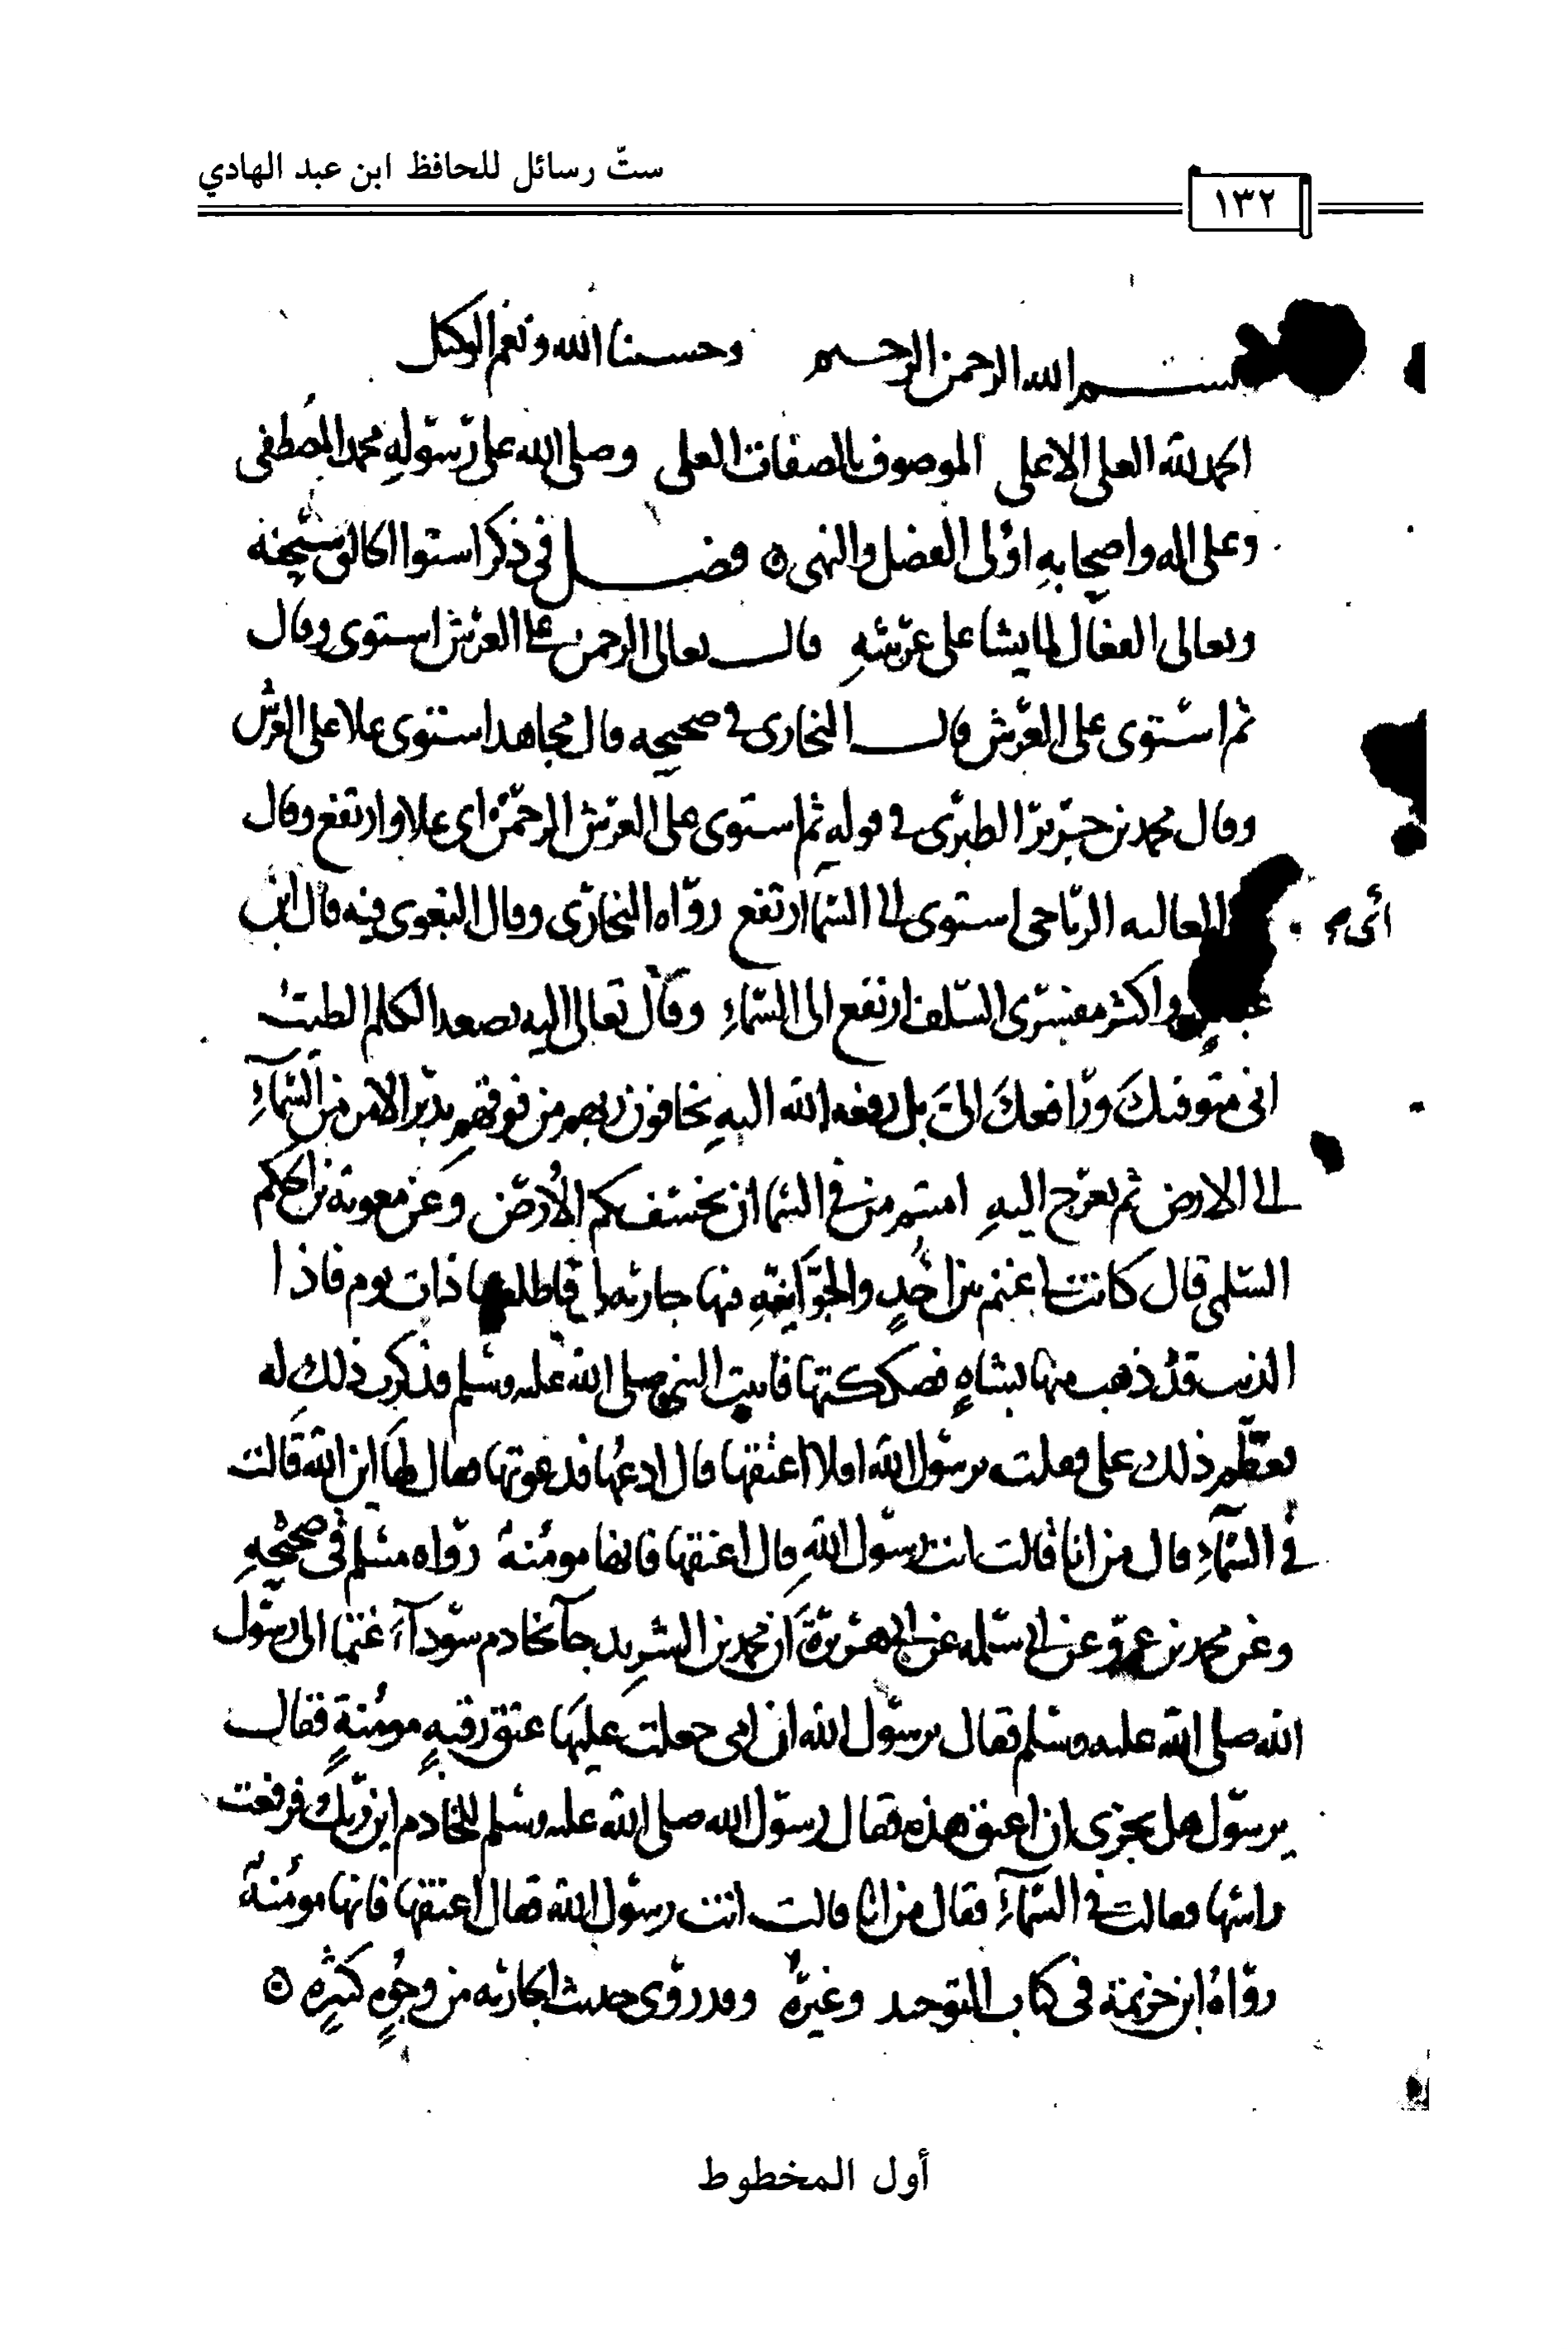 ستّ رسائل للحافظ ابن عبد الهادي
١٣٢
بسم الله الرحمن الرحيم وحسبنا الله ونعم الوكيل
الحمد لله العلي الاعلى الموصوف بالصفات العلى وصلى الله على رسوله محمد المصطفى
وعلى اله واصحابه اولى الفضل والنهى فصل في ذكر استوا الخالق سبحنه
وتعالى الفعال لما يشا على عرشه قال تعالى الرحمن على العرش استوى وقال
ثم استوى على العرش قال البخارى في صحيحه قال مجاهد استوى علا على العرش
وقال محمد بن جرير الطبرى في قوله ثم استوى على العرش الرحمن اى علا وارتفع وقال
ابى العاليه الرياحى استوى الى السما ارتفع رواه البخارى وقال البغوى فيه قال ابن
عباس واكثر مفسرى السلف ارتفع الى السماء وقال تعالى اليه يصعد الكلم الطيب
انى متوفيك ورافعك الى بل رفعه الله اليه يخافون ربهم من فوقهم يدبر الامر من السماء
الى الارض ثم يعرج اليه امنتم من في السما ان يخسف بكم الارض وعن معوية بن الحكم
السلمى قال كانت لى غنم بين احد والجوانية فيها جارية لى فاطلعتها ذات يوم فاذا
الذيب قد ذهب منها بشاة فصككتها فاتيت النبي صلى الله عليه وسلم فذكرت ذلك له
فعظم ذلك على فقلت يرسول الله افلا اعتقها قال ادعها فدعوتها فقال لها اين الله قالت
في السماء قال من انا قالت انت رسول الله قال اعتقها فانها مومنة رواه مسلم في صحيحه
وعن محمد بن عمرو عن ابي سلمه عن ابي هريرة ان محمد بن الشريد جآ بخادم سودآء عتما الى رسول
الله صلى الله عليه وسلم فقال يرسول الله ان امى جعلت عليها عتق رقبة مومنة فقال
يرسول هل يجزى ان اعتق هذه فقال رسول الله صلى الله عليه وسلم للخادم اين ربك فرفعت
راسها فقالت في السمآء فقال من انا قالت انت رسول الله فقال اعتقها فانها مومنة
رواه ابن خزيمة في كتاب التوحيد وغيره وقد روى حديث الجارية من وجوه كثيره
أول المخطوط